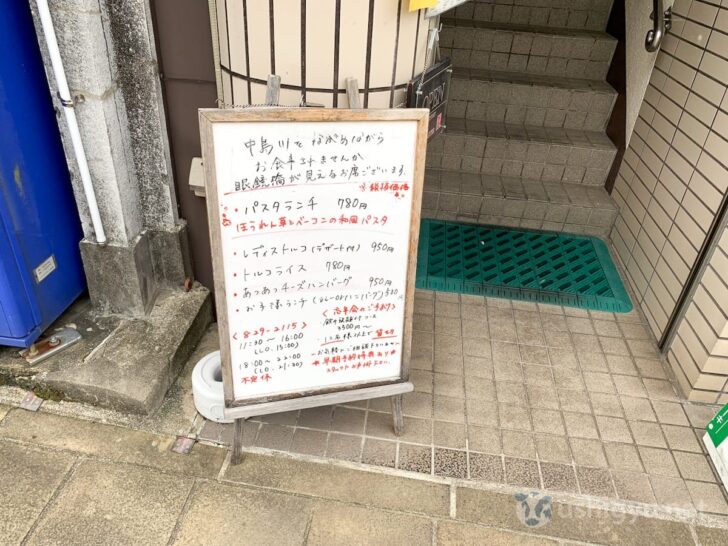 中島川をながめながら
お食事しませんか
眼鏡橋が見えるお席ございます。
・パスタランチ 780円
ほうれん草とベーコンの和風パスタ
・レディストルコ(デザート付) 950円
・トルコライス 780円
・あつあつチーズハンバーグ 950円
・お子様ランチ
<829-2115>
11:30 ~ 16:00
(L.O. 15:00)
18:00 ~ 22:00
(L.O. 21:30)
不定休
10名様以上で貸切
早期予約特典あり
OPEN
ushigyu.net